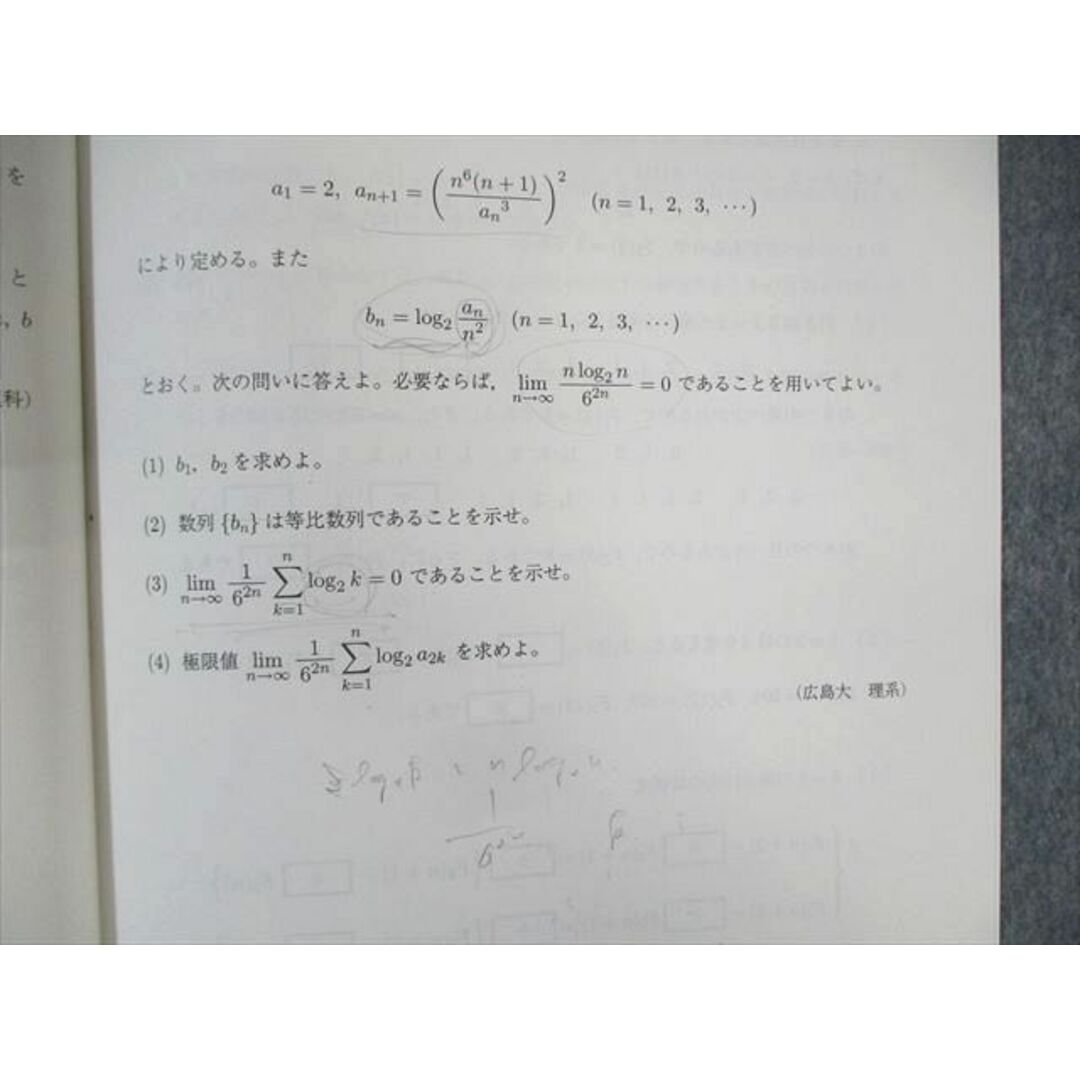 を
と
, b
科)
a₁ = 2, aₙ₊₁ = (n⁶(n + 1) / aₙ³)² (n = 1, 2, 3, ⋯)
により定める。また
bₙ = log₂ aₙ/n² (n = 1, 2, 3, ⋯)
とおく。次の問いに答えよ。必要ならば, lim_{n→∞} n log₂ n / 6²ⁿ = 0 であることを用いてよい。
(1) b₁, b₂ を求めよ。
(2) 数列 {bₙ} は等比数列であることを示せ。
(3) lim_{n→∞} 1/6²ⁿ ∑_{k=1}^{n} log₂ k = 0 であることを示せ。
(4) 極限値 lim_{n→∞} 1/6²ⁿ ∑_{k=1}^{n} log₂ a₂ₖ を求めよ。
(広島大 理系)